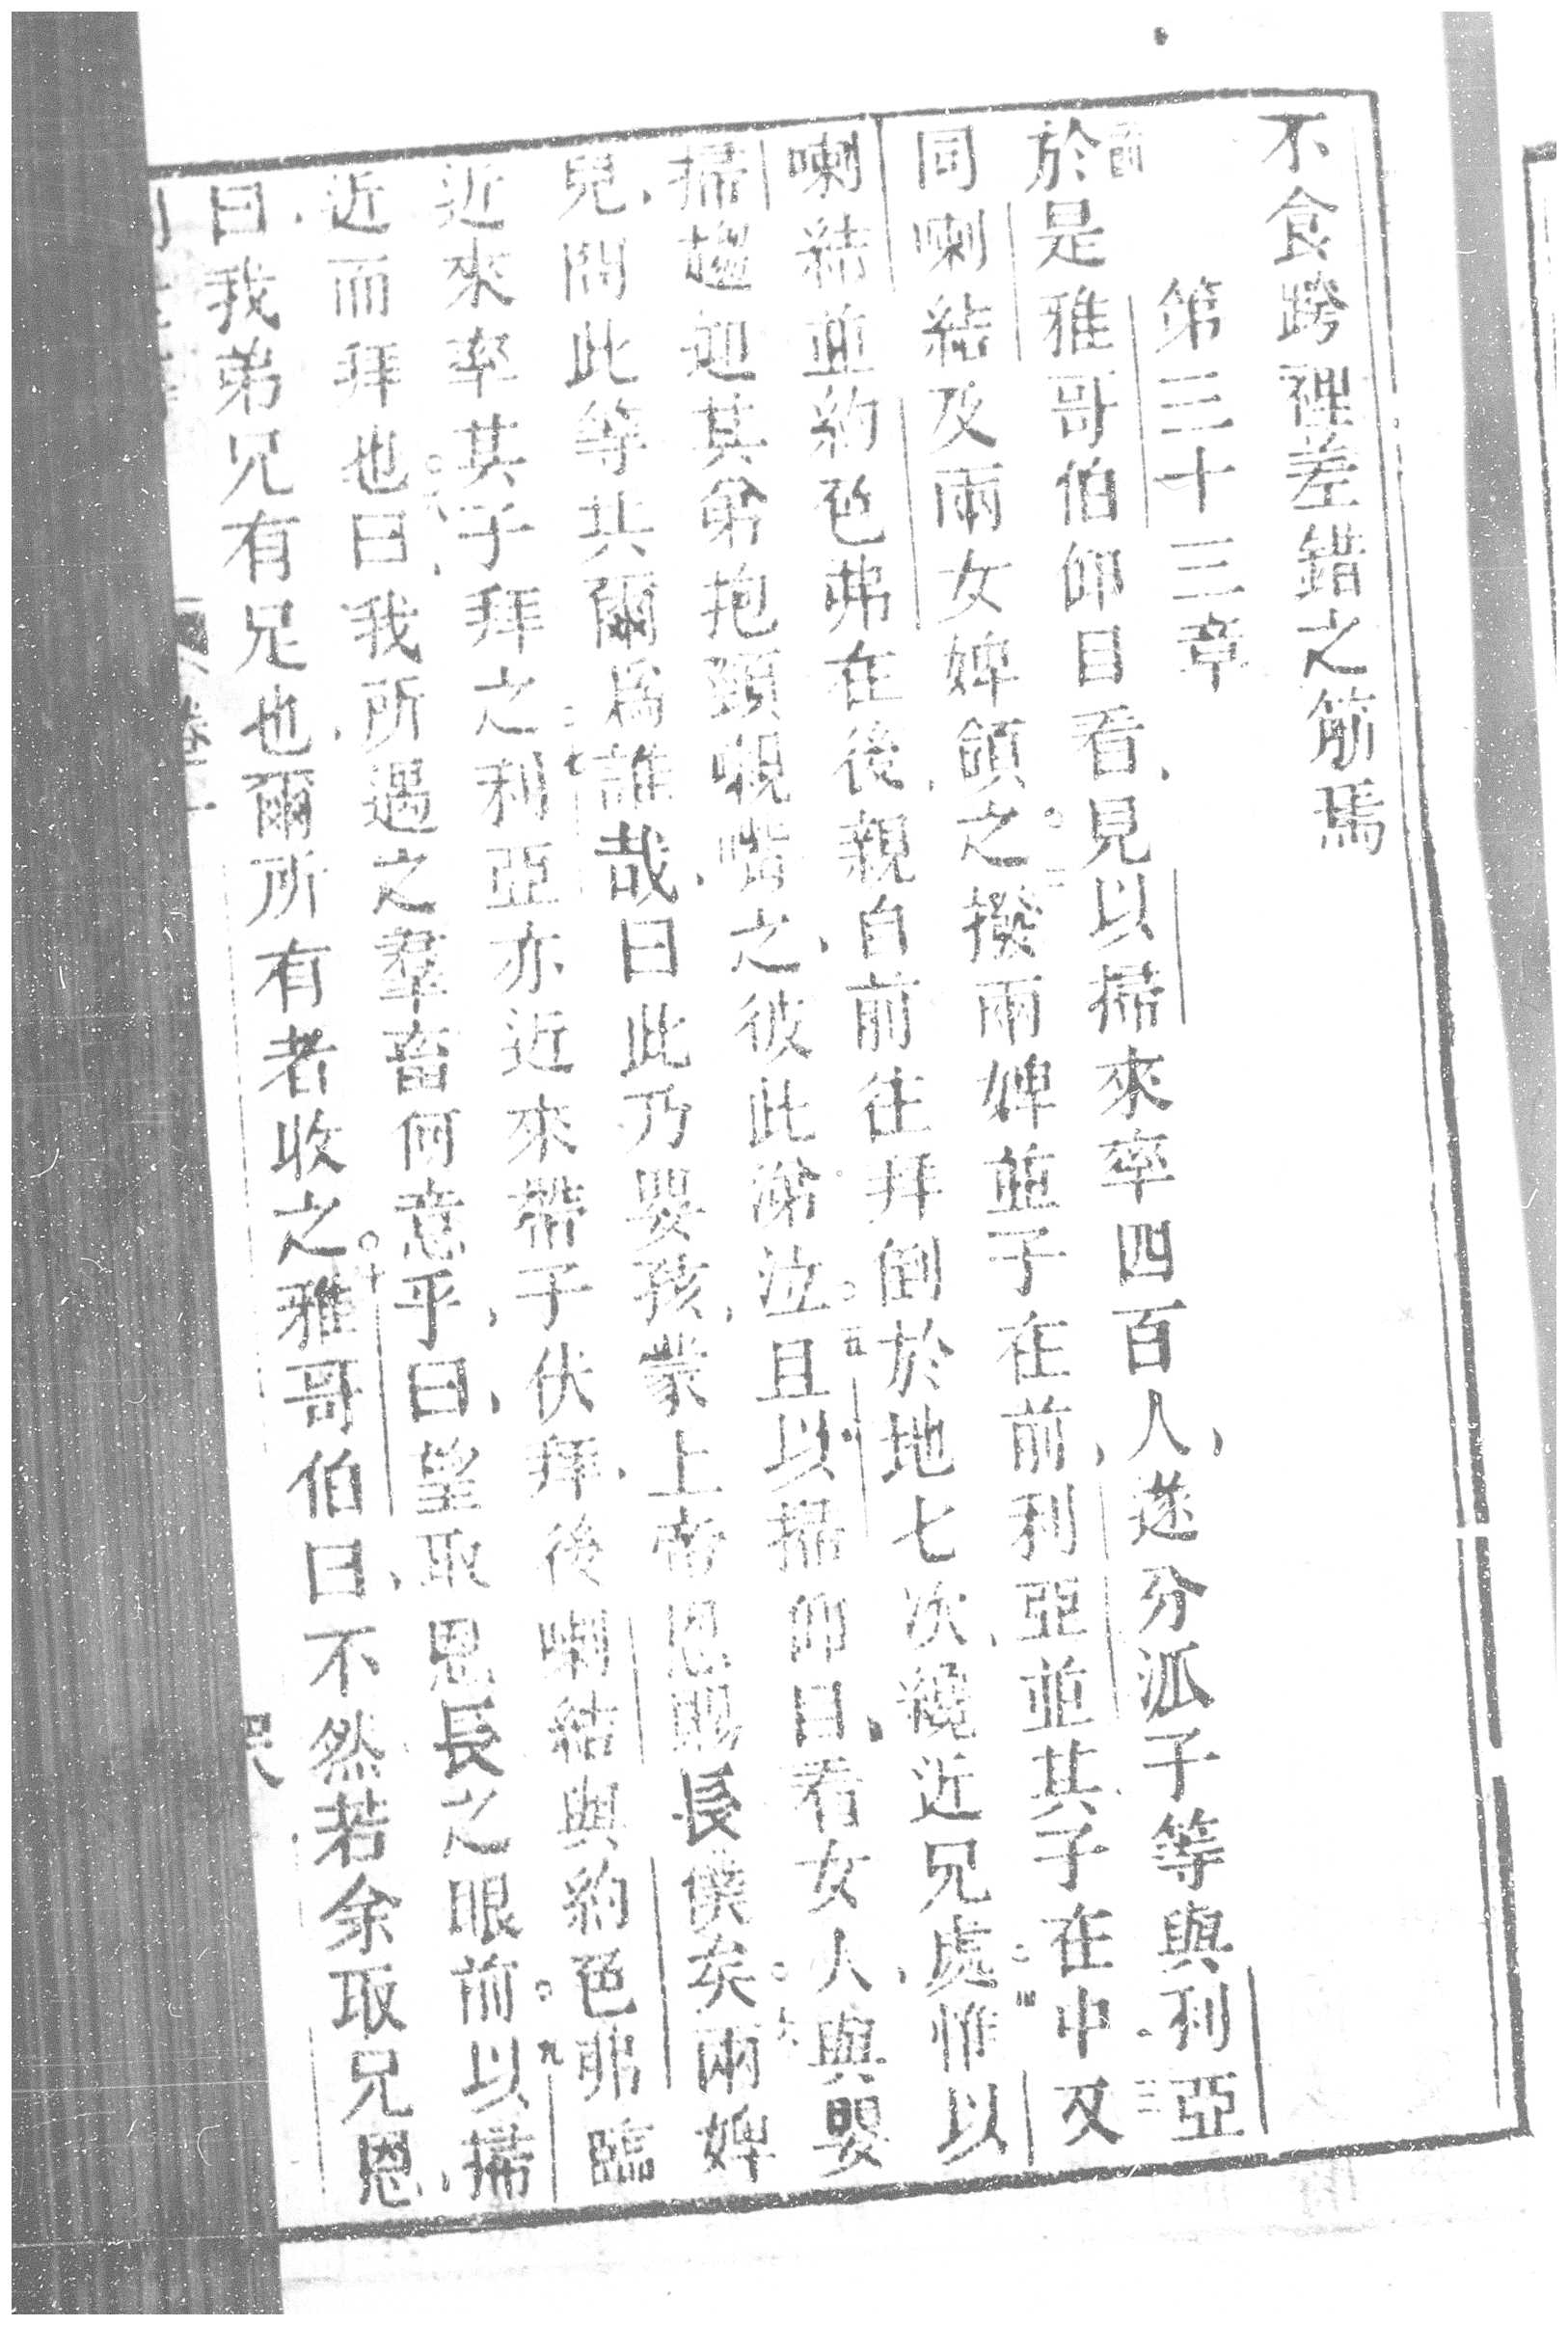 不食跨裡差錯之筋焉
第三十三章
於是雅哥伯仰目看、見以掃來率四百人、遂分派子等與利亞
同喇結及兩女婢領之。二撥兩婢並子在前、利亞並其子在中及
喇結並約色弗在後、親自前往拜倒於地七次、纔近兄處。四惟以
掃趨迎其弟抱頸嚬喈之、彼此涕泣。五且以掃仰目看女人與嬰
兒、問此等共爾為誰哉、曰此乃嬰孩、蒙上帝恩賜長僕矣。六兩婢
近來率其子拜之。七利亞亦近來帶子伏拜、後喇結與約色弗臨
近而拜也。八曰、我所遇之羣畜何意乎、曰、望取恩長之眼前。九以掃
曰、我弟兄有足也、爾所有者收之。十雅哥伯曰、不然若余取兄恩、